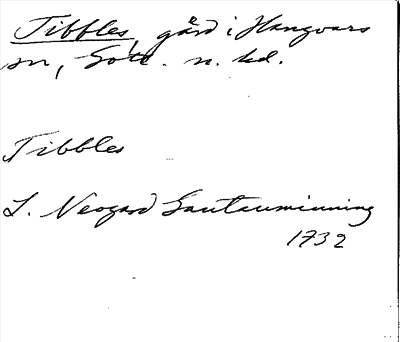 Tibbles, gård i Hangvars
sn, Gotl. n. hd.
Tibbles
L. Neogard Gautauminning
1732